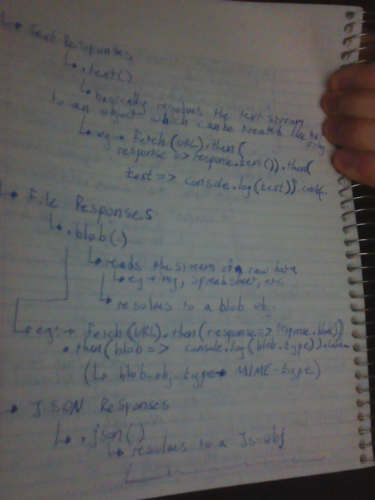 ↳ Text Responses
↳ .text()
↳ basically resolves the text-stream
to an object which can be treated like
↳ eg → fetch(URL).then(
response => response.text()).then(
text => console.log(text)).
↳ File Responses
↳ .blob()
↳ reads the stream of raw data
↳ eg → img, spreadsheet, etc
↳ resolves to a blob obj.
↳ eg: → fetch(URL).then(response => response.blob())
.then(blob => console.log(blob.type)).
(↳ blob-obj.type → MIME-type)
→ JSON Responses
↳ .json()
↳ resolves to a Js-obj